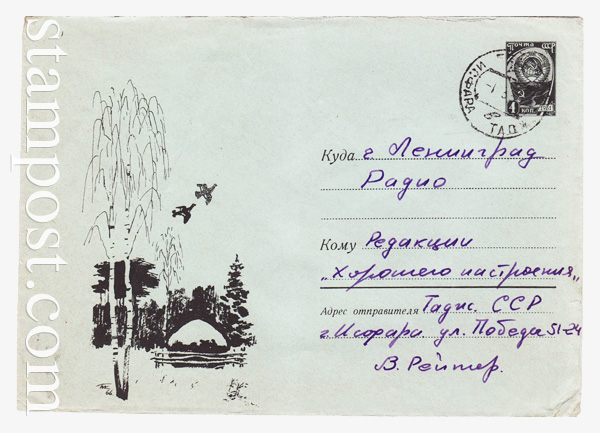 stampost.com
Почта СССР
4
коп
ИСФАРА
ТАДЖ
Куда г. Ленинград
Радио
Кому Редакции
„Хорошего настроения„
Адрес отправителя Тадж. ССР
г. Исфара ул. Победа 51-24
В. Рейтер.
66